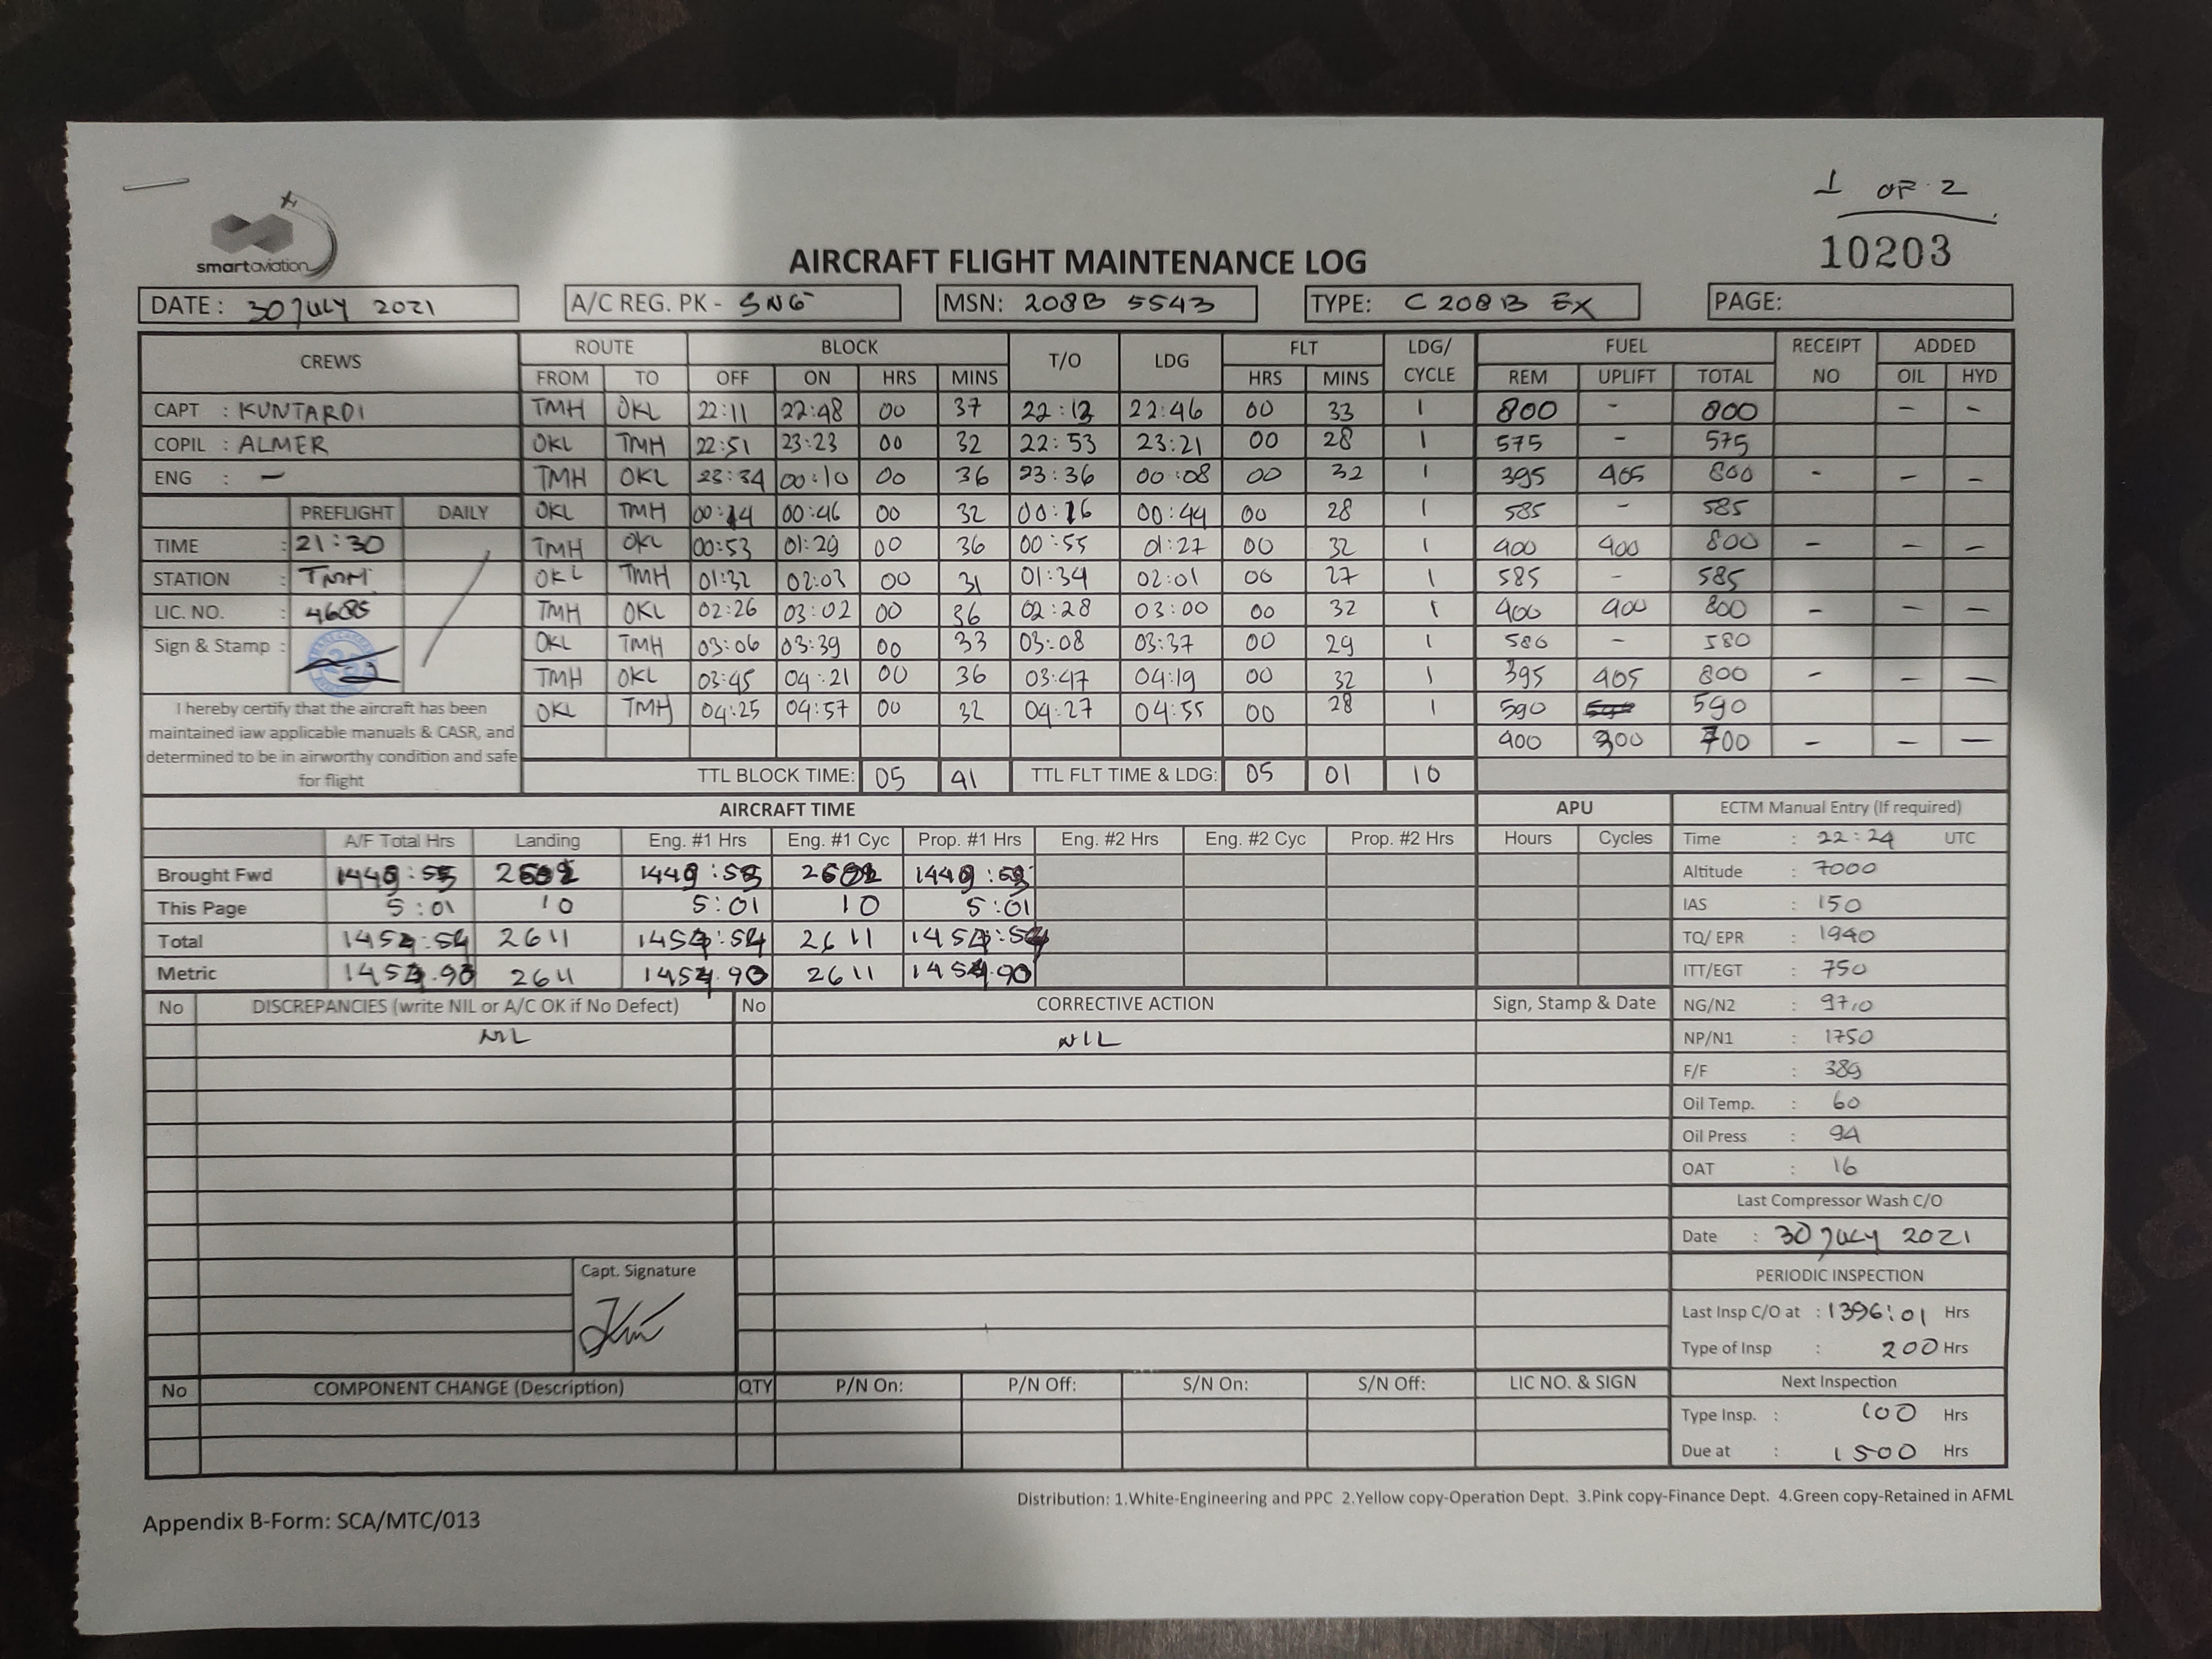 1 OF 2
smartaviation
AIRCRAFT FLIGHT MAINTENANCE LOG
10203
DATE : 30 JULY 2021 A/C REG. PK - SNG MSN: 208B 5543 TYPE: C 208 B EX PAGE:
CREWS ROUTE BLOCK T/O LDG FLT LDG/ CYCLE FUEL RECEIPT NO ADDED
FROM TO OFF ON HRS MINS HRS MINS REM UPLIFT TOTAL OIL HYD
CAPT : KUNTARDI TMH OKL 22:11 22:48 00 37 22:13 22:46 00 33 1 800 - 800 - -
COPIL : ALMER OKL TMH 22:51 23:23 00 32 22:53 23:21 00 28 1 575 - 575
ENG : - TMH OKL 23:34 00:10 00 36 23:36 00:08 00 32 1 395 405 800 - - -
PREFLIGHT DAILY OKL TMH 00:14 00:46 00 32 00:16 00:44 00 28 1 585 - 585
TIME : 21:30 TMH OKL 00:53 01:29 00 36 00:55 01:27 00 32 1 400 400 800 - - -
STATION : TMH OKL TMH 01:32 02:03 00 31 01:34 02:01 00 27 1 585 - 585
LIC. NO. : 4685 TMH OKL 02:26 03:02 00 36 02:28 03:00 00 32 1 400 400 800 - - -
Sign & Stamp : OKL TMH 03:06 03:39 00 33 03:08 03:37 00 29 1 580 - 580
TMH OKL 03:45 04:21 00 36 03:47 04:19 00 32 1 395 405 800 - - -
OKL TMH 04:25 04:57 00 32 04:27 04:55 00 28 1 590 590
400 300 700 - - -
I hereby certify that the aircraft has been
maintained iaw applicable manuals & CASR, and
determined to be in airworthy condition and safe
for flight
TTL BLOCK TIME: 05 41 TTL FLT TIME & LDG: 05 01 10
AIRCRAFT TIME APU ECTM Manual Entry (If required)
A/F Total Hrs Landing Eng. #1 Hrs Eng. #1 Cyc Prop. #1 Hrs Eng. #2 Hrs Eng. #2 Cyc Prop. #2 Hrs Hours Cycles Time : 22:24 UTC
Brought Fwd Altitude : 7000
This Page 5:01 10 5:01 10 5:01 IAS : 150
Total 1454:54 2611 1454:54 2611 1454:54 TQ/ EPR : 1940
Metric 1454.90 2611 1454.90 2611 1454.90 ITT/EGT : 750
No DISCREPANCIES (write NIL or A/C OK if No Defect) No CORRECTIVE ACTION Sign, Stamp & Date NG/N2 : 97,0
NIL NIL NP/N1 : 1750
F/F : 389
Oil Temp. : 60
Oil Press : 94
OAT : 16
Last Compressor Wash C/O
Date : 30 JULY 2021
Capt. Signature
PERIODIC INSPECTION
Last Insp C/O at : 1396:01 Hrs
Type of Insp : 200 Hrs
No COMPONENT CHANGE (Description) QTY P/N On: P/N Off: S/N On: S/N Off: LIC NO. & SIGN Next Inspection
Type Insp. : 100 Hrs
Due at : 1500 Hrs
Distribution: 1.White-Engineering and PPC 2.Yellow copy-Operation Dept. 3.Pink copy-Finance Dept. 4.Green copy-Retained in AFML
Appendix B-Form: SCA/MTC/013